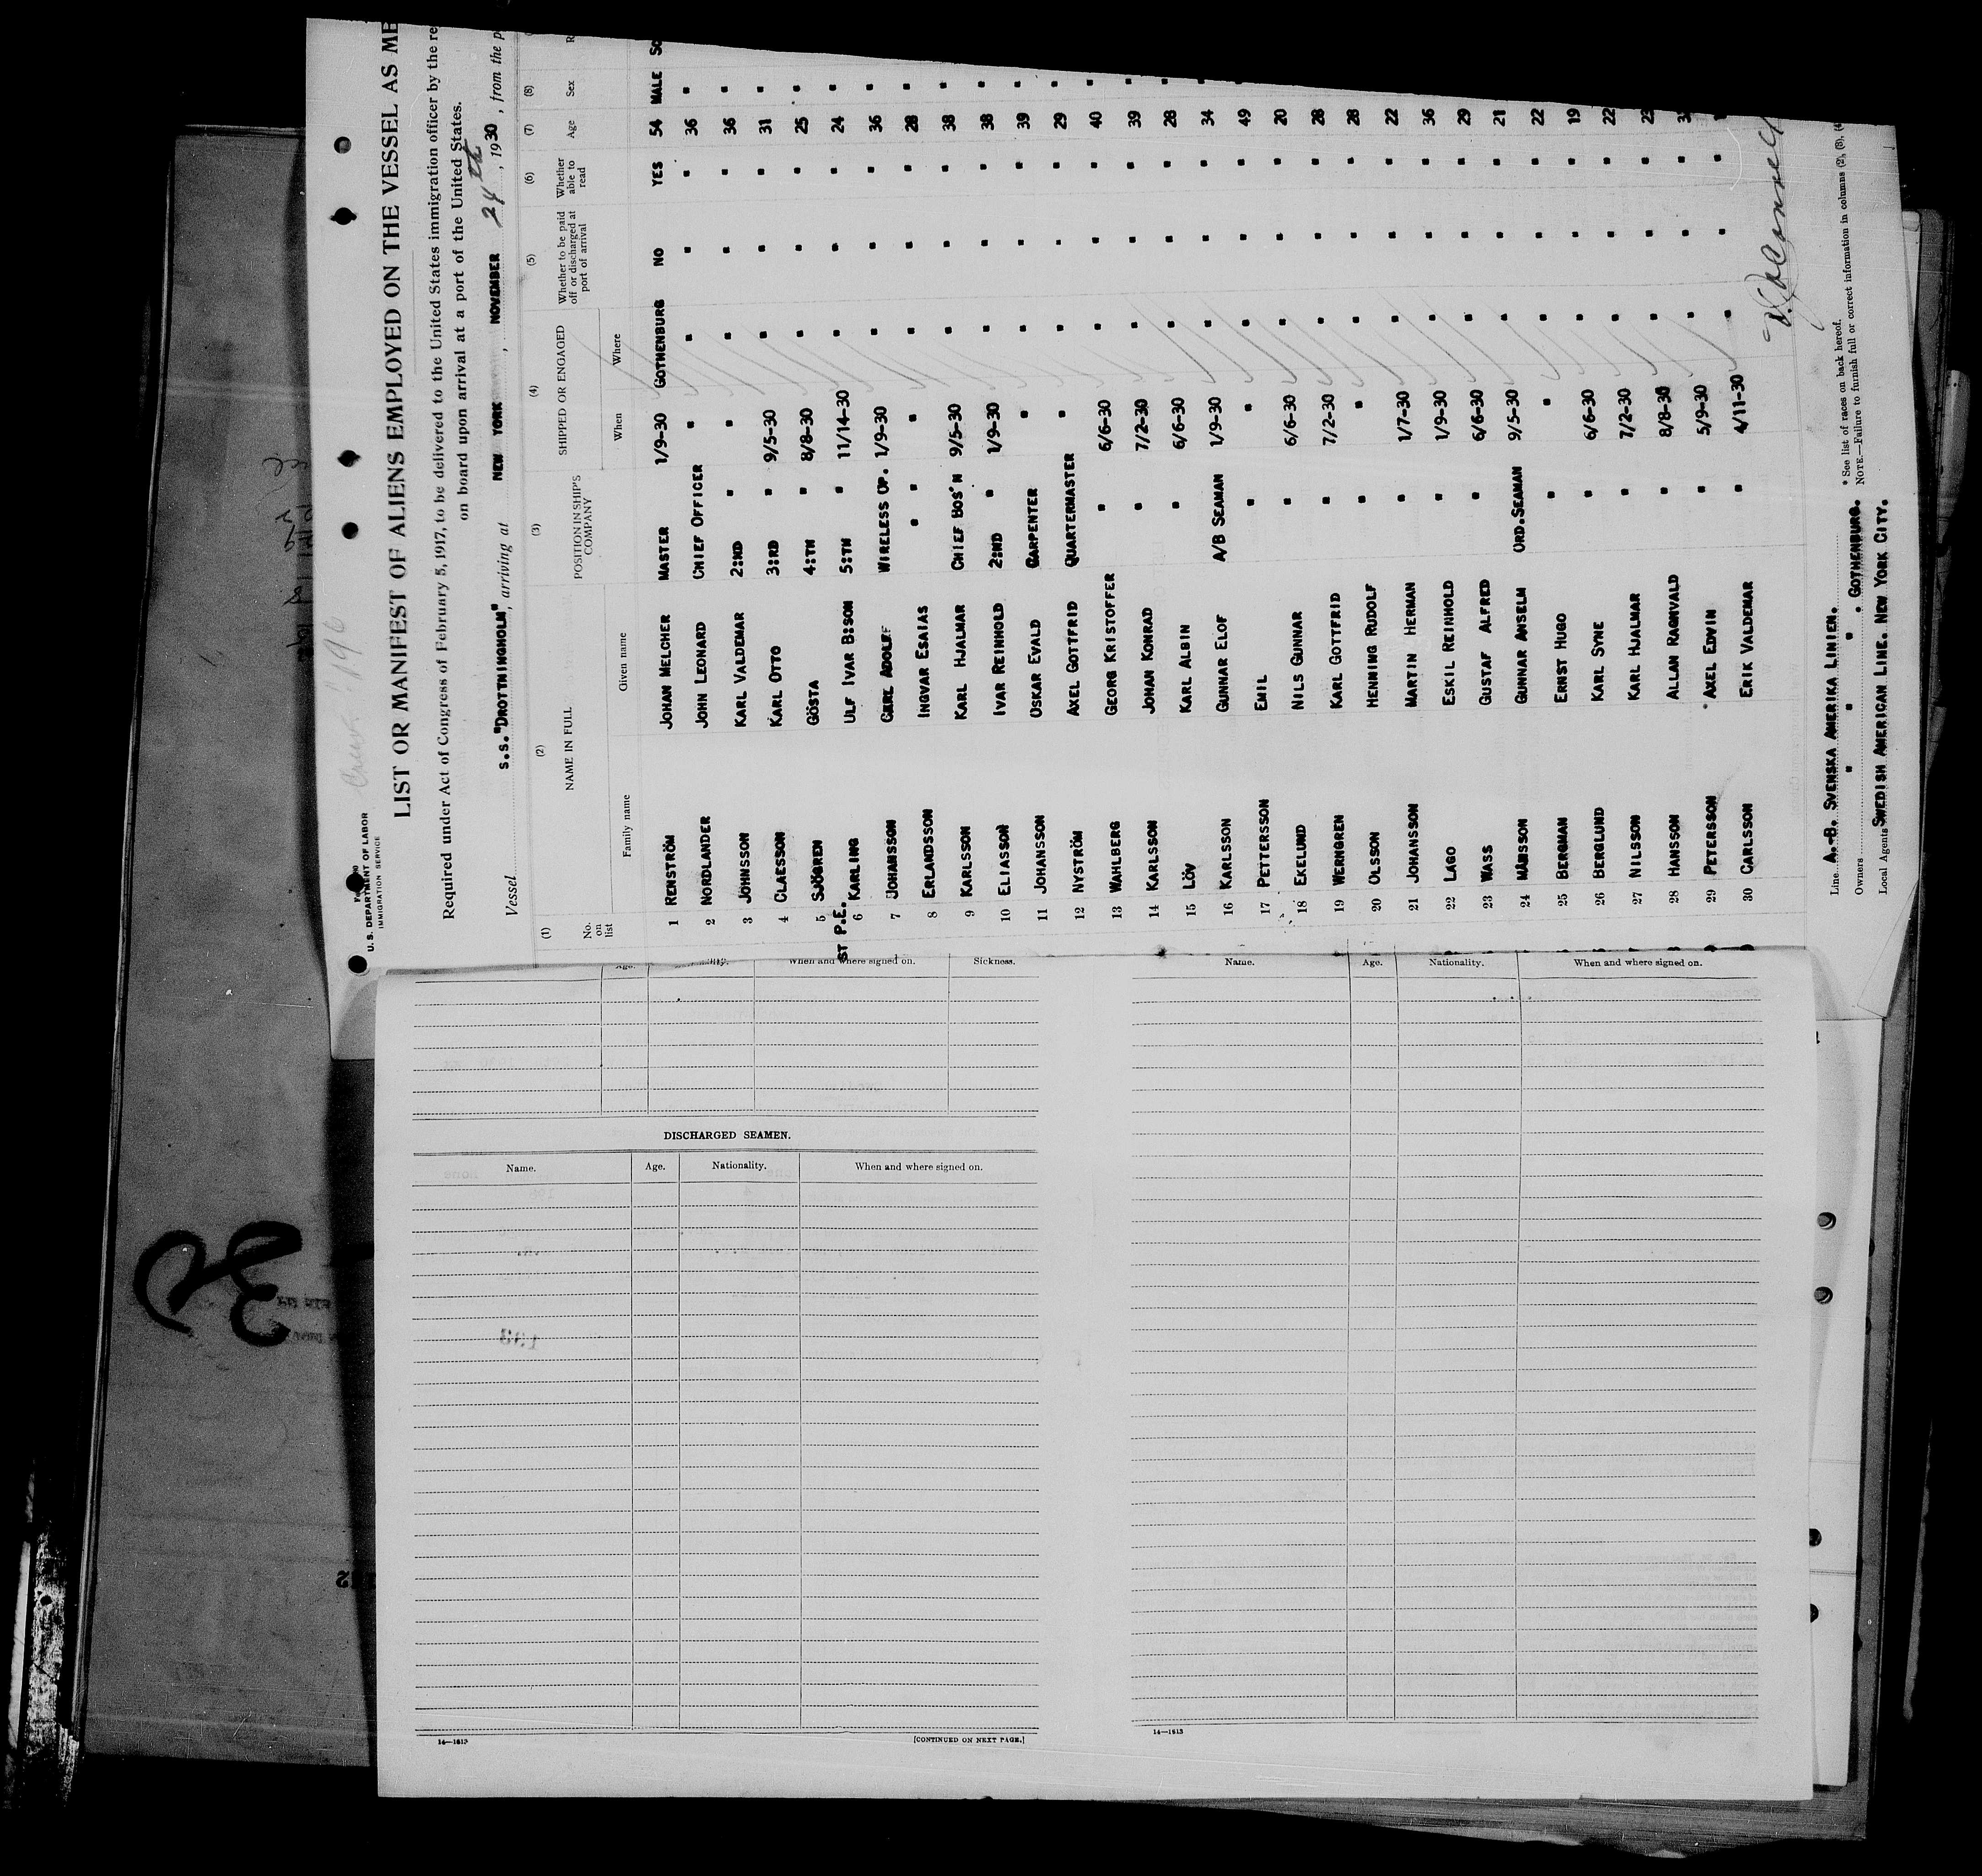 U. S. DEPARTMENT OF LABOR
IMMIGRATION SERVICE
LIST OR MANIFEST OF ALIENS EMPLOYED ON THE VESSEL AS ME
Required under Act of Congress of February 5, 1917, to be delivered to the United States immigration officer by the re
on board upon arrival at a port of the United States.
Vessel S.S. "DROTTNINGHOLM", arriving at NEW YORK, NOVEMBER 24th, 1930, from the p
(1) (2) (3) (4) (5) (6) (7) (8)
No. on list NAME IN FULL POSITION IN SHIP'S COMPANY SHIPPED OR ENGAGED Whether to be paid off or discharged at port of arrival Whether able to read Age Sex R
Family name Given name When Where
1 RENSTRÖM JOHAN MELCHER MASTER 1/9-30 GOTHENBURG NO YES 54 MALE SC
2 NORDLANDER JOHN LEONARD CHIEF OFFICER " " " " 36 "
3 JOHNSSON KARL VALDEMAR 2:ND " " " " " 36 "
4 CLAESSON KARL OTTO 3:RD " 9/5-30 " " " 31 "
5 SJÖGREN GÖSTA 4:TH " 8/8-30 " " " 25 "
ST P.E.
6 KARLING ULF IVAR B:SON 5:TH " 11/14-30 " " " 24 "
7 JOHANSSON ADOLF WIRELESS OP. 1/9-30 " " " 36 "
8 ERLANDSSON INGVAR ESAIAS " " " " " " 28 "
9 KARLSSON KARL HJALMAR CHIEF BOS'N 9/5-30 " " " 38 "
10 ELIASSON IVAR REINHOLD 2:ND " 1/9-30 " " " 38 "
11 JOHANSSON OSKAR EVALD CARPENTER " " " " 39 "
12 NYSTRÖM AXEL GOTTFRID QUARTERMASTER " " " " 29 "
13 WAHLBERG GEORG KRISTOFFER " 6/6-30 " " " 40 "
14 KARLSSON JOHAN KONRAD " 7/2-30 " " " 39 "
15 LÖV KARL ALBIN " 6/6-30 " " " 28 "
16 KARLSSON GUNNAR ELOF A/B SEAMAN 1/9-30 " " " 34 "
17 PETTERSSON EMIL " " " " " 49 "
18 EKELUND NILS GUNNAR " 6/6-30 " " " 20
19 WERNGREN KARL GOTTFRID " 7/2-30 " " " 28
20 OLSSON HENNING RUDOLF " " " " " 28
21 JOHANSSON MARTIN HERMAN " 1/7-30 " " " 22
22 LAGO ESKIL REINHOLD " 1/9-30 " " " 36
23 WASS GUSTAF ALFRED " 6/6-30 " " " 29
24 MÅNSSON GUNNAR ANSELM ORD.SEAMAN 9/5-30 " " " 21
25 BERGMAN ERNST HUGO " " " " " 22
26 BERGLUND KARL SYNE " 6/6-30 " " " 19
27 NILSSON KARL HJALMAR " 7/2-30 " " " 22
28 HANSSON ALLAN RAGNVALD " 8/8-30 " " "
29 PETERSSON AXEL EDVIN " 5/9-30 " " "
30 CARLSSON ERIK VALDEMAR " 4/11-30 " " "
Line A.-B. SVENSKA AMERIKA LINIEN.
* See list of races on back hereof.
Owners " " " . GOTHENBURG.
NOTE.—Failure to furnish full or correct information in columns (2), (3), (4
Local Agents SWEDISH AMERICAN LINE. NEW YORK CITY.
When and where signed on. Sickness.
DISCHARGED SEAMEN.
Name. Age. Nationality. When and where signed on.
14—1613
[CONTINUED ON NEXT PAGE.]
Name. Age. Nationality. When and where signed on.
14—1613